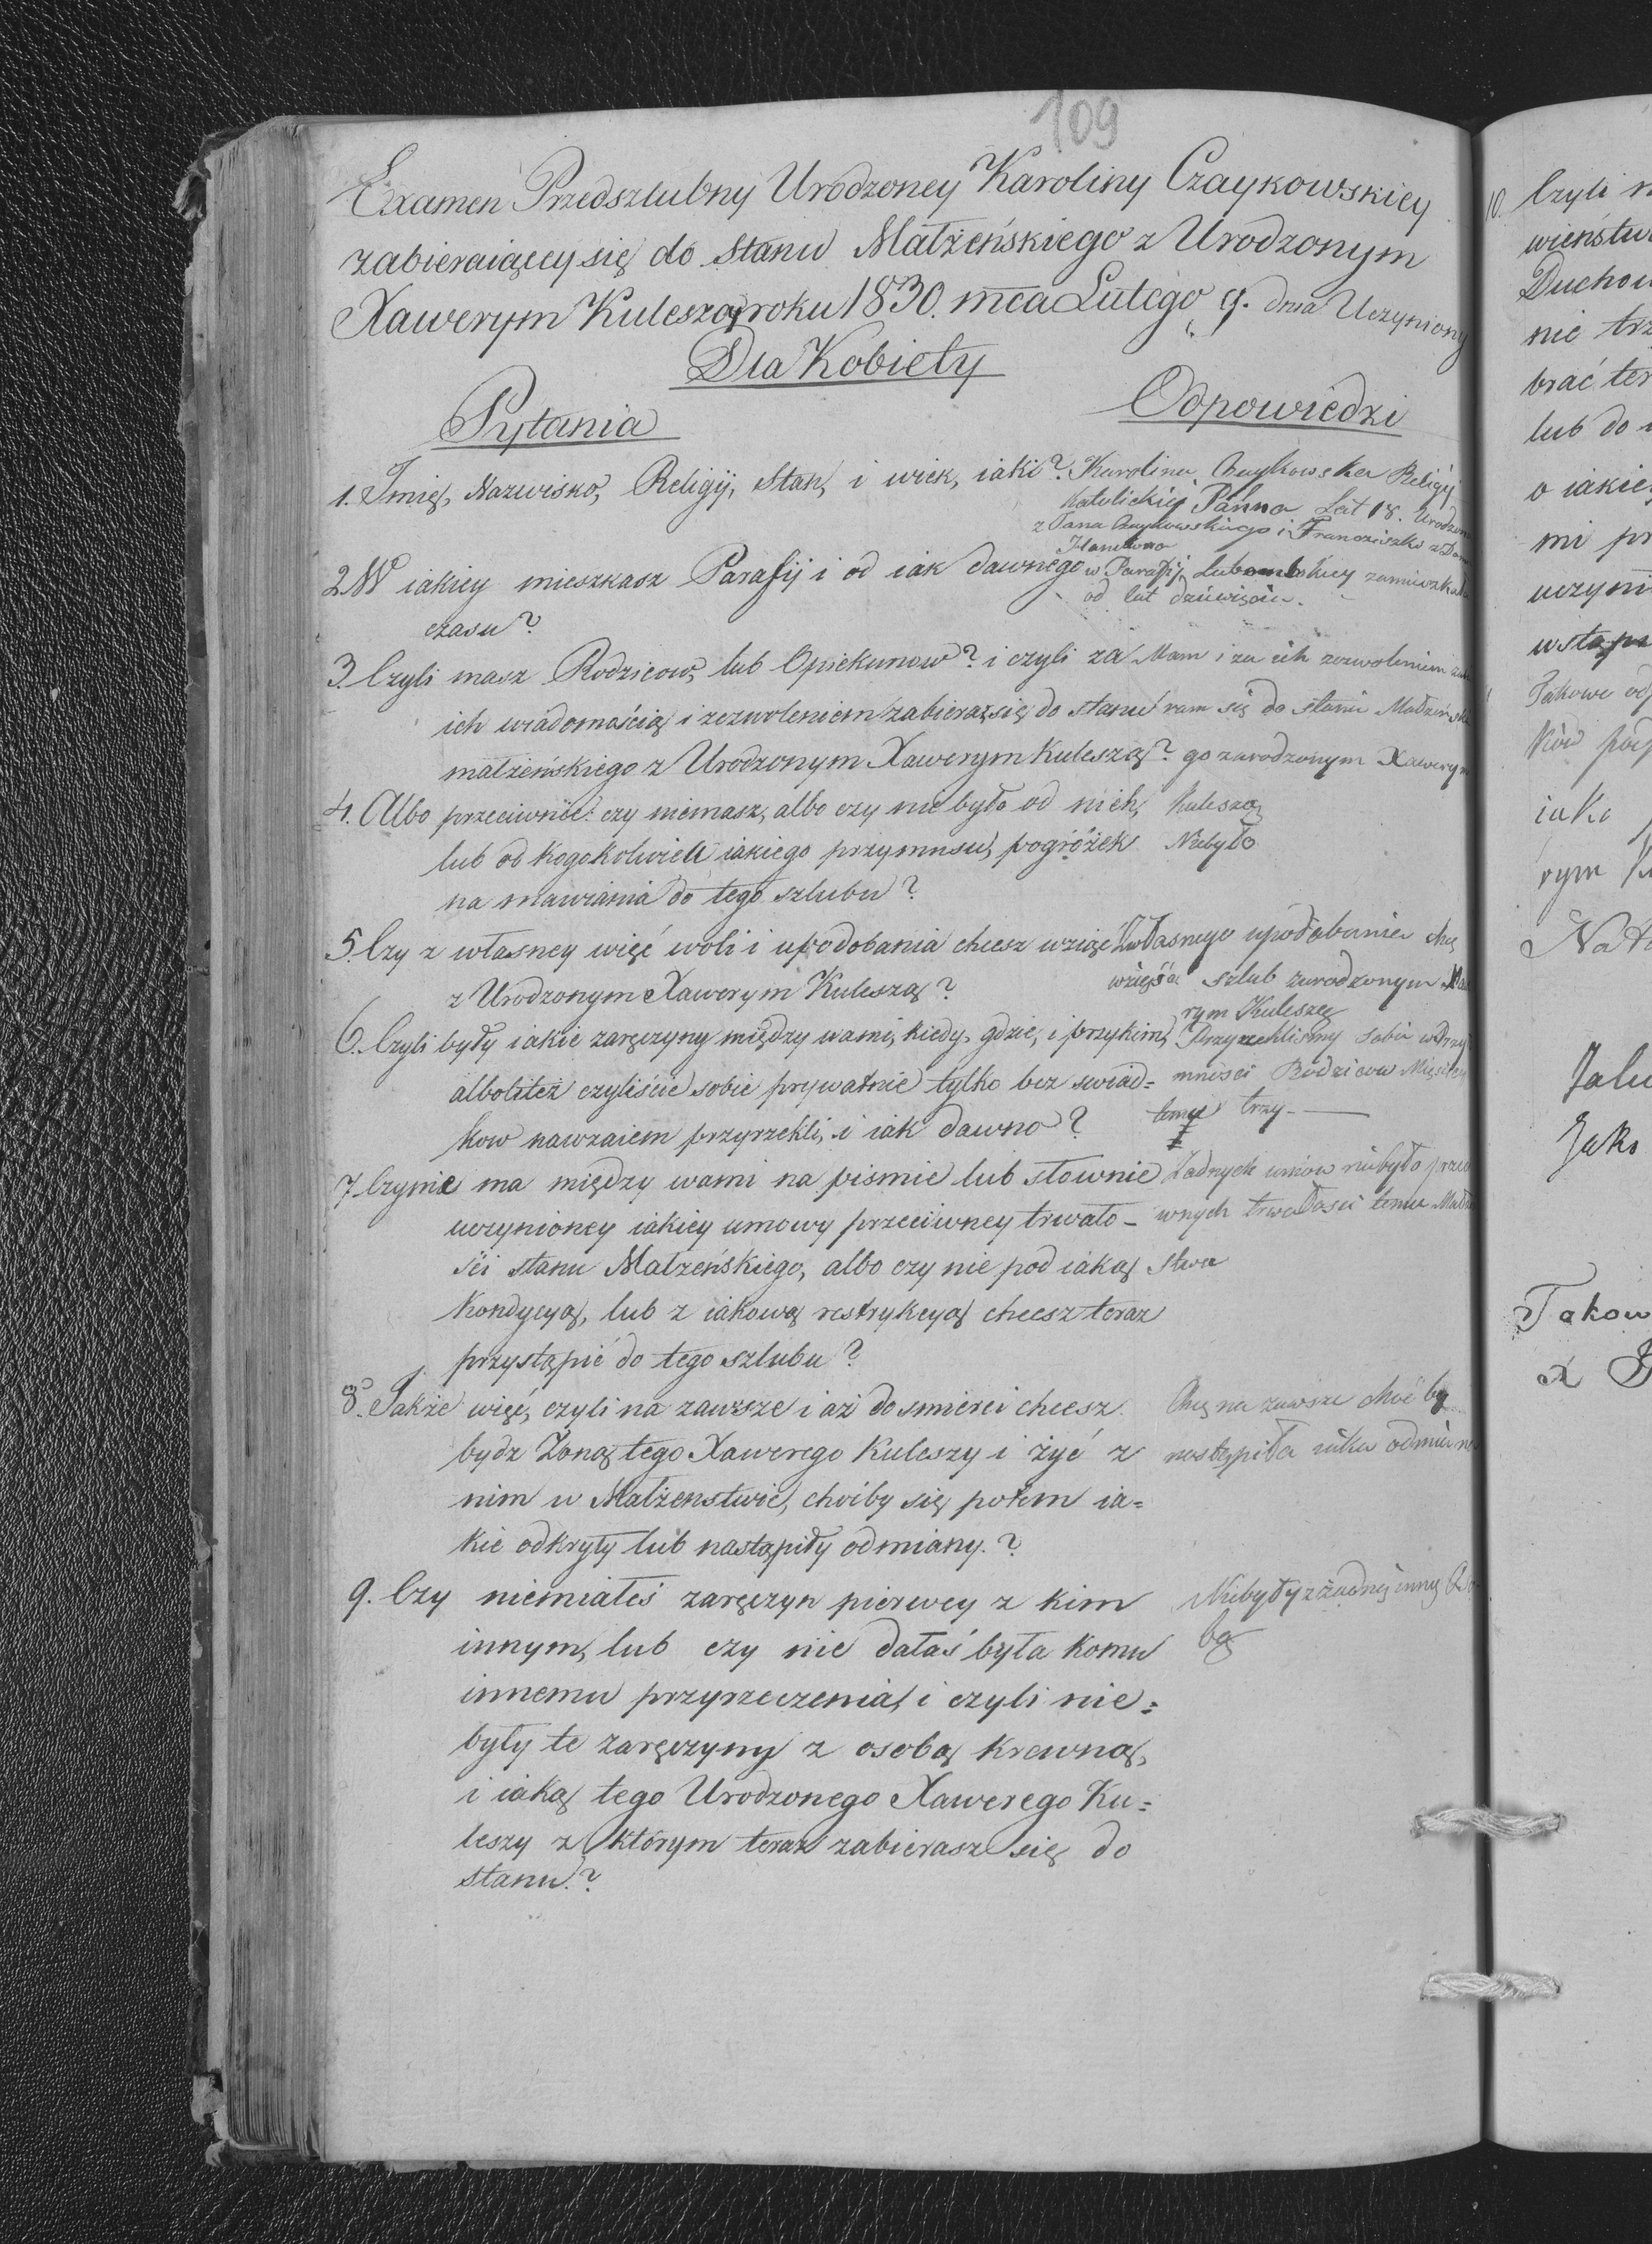 109
Examen Przedszlubny Urodzoney Karoliny Czaykowskiey
zabieraiącey się do Stanu Małżeńskiego z Urodzonym
Xawerym Kuleszą roku 1830. mca Lutego 9. dnia Uczyniony
Dla Kobiety
Pytania
Odpowiedzi
1. Imię, Nazwisko, Religij, Stan, i wiek, iaki?
Karolina Czaykowska Religij
Katolickiey Panna Lat 18. Urodzona
z Jana Czaykowskiego i Franciszki z
2. W iakiey mieszkasz Parafij i od iak dawnego
czasu?
w Parafij zamieszkała
od lat dziewięciu.
3. Czyli masz Rodzicow, lub Opiekunow? i czyli za
ich wiadomością i zezwoleniem zabierasz się do stanu
małżeńskiego z Urodzonym Xawerym Kuleszą?
Mam i za ich zezwoleniem
ram się do stanu
go zurodzonym Xawerym
Kuleszą
4. Albo przeciwnie: czy niemasz, albo czy nie było od nich,
lub od kogokolwiek iakiego przymusu, pogróżek
na mawiania do tego szlubu?
Niebyło
5. Czy z własney więć woli i upodobania chcesz wziąć
z Urodzonym Xawerym Kuleszą?
Zwłasnego upodobania chcę
wziąść szlub zurodzonym
rym Kuleszą
6. Czyli były iakie zaręczyny między wami, kiedy, gdzie, i przykim,
alboliteż czyliście sobie prywatnie tylko bez swiad=
kow nawzaiem przyrzekli, i iak dawno?
Przyrzekliśmy sobie
mności Rodzicow
temu trzy
7. Czynie ma między wami na pismie lub słownie
uczynioney iakiey umowy przeciwney trwało-
ści stanu Małżeńskiego, albo czy nie pod iaką
Kondycyą, lub z iakową restrykcyą chcesz teraz
przystąpić do tego szlubu?
Żadnych umów niebyło
wnych trwałości temu
stwa
8. Także więć, czyli na zawsze i aż do smierci chcesz
bydz Żoną tego Xawerego Kuleszy i żyć z
nim w Małżenstwie, choiby się potem ia=
kie odkryły lub nastąpiły odmiany.?
Chcę na zawsze choć by
nastąpiła iaka odmiana
9. Czy niemiałeś zaręczyn pierwey z kim
innym, lub czy nie dałaś była komu
innemu przyrzeczenia, i czyli nie=
były te zaręczyny z osobą krewną,
i iaką tego Urodzonego Xawerego Ku=
leszy z którym teraz zabierasz się do
stanu.?
Niebyły zżadną inną Oso
bą
10. Czyli
Duchow
nie
brać
lub do
o iakie
mi
uczyni
wstąp
Takowe
ków
iako
rym
Jako
Takow